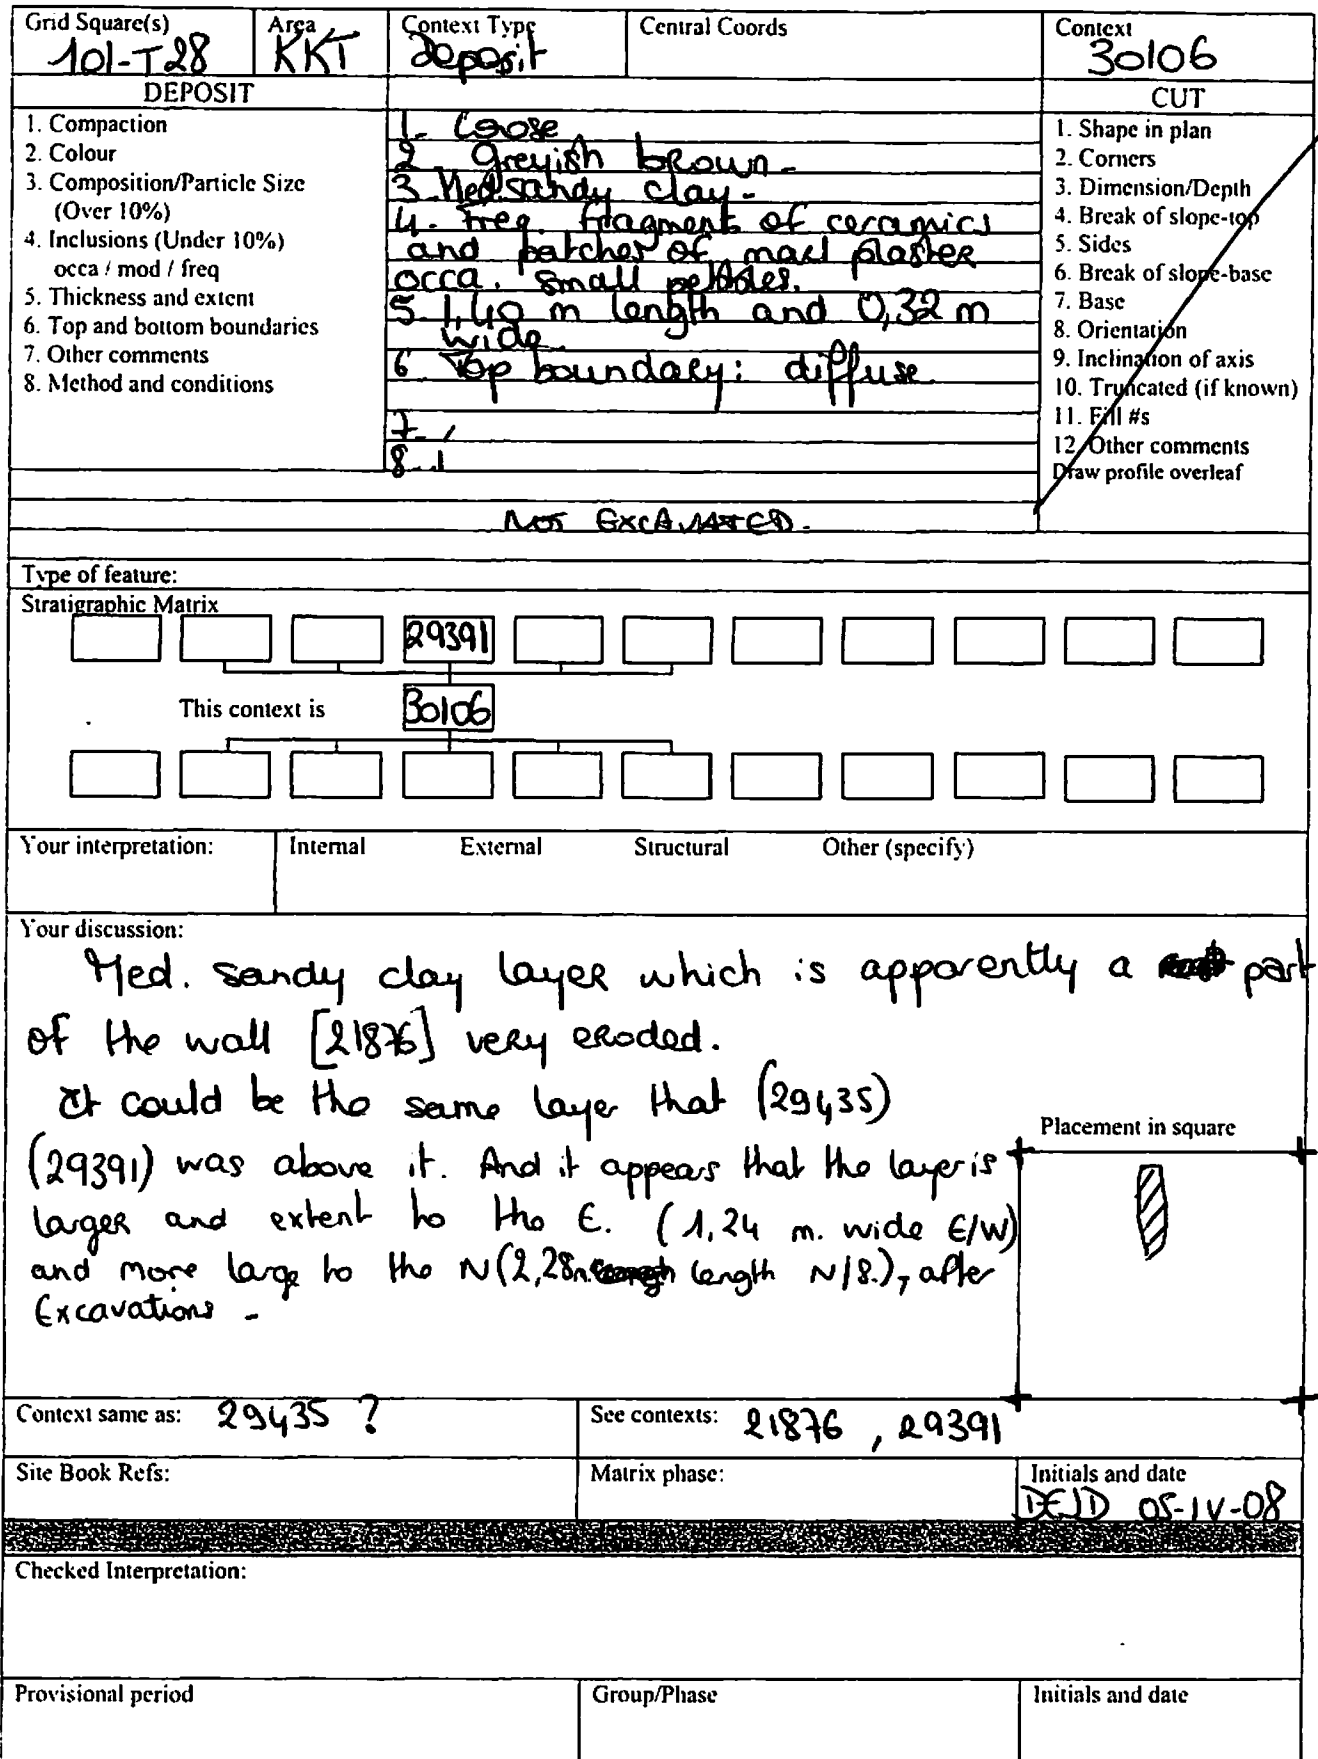 Grid Square(s) Area Context Type Central Coords Context
101-T28 KKT Deposit 30106
DEPOSIT CUT
1. Compaction
2. Colour
3. Composition/Particle Size
(Over 10%)
4. Inclusions (Under 10%)
occa / mod / freq
5. Thickness and extent
6. Top and bottom boundaries
7. Other comments
8. Method and conditions
1. Loose
2. Greyish brown -
3. Med sandy clay -
4. Freq. fragment of ceramics
and patches of marl plaster
occa. small pebbles.
5. 1,40 m length and 0,32 m
wide.
6. Top boundary: diffuse
7. /
8. /
1. Shape in plan
2. Corners
3. Dimension/Depth
4. Break of slope-top
5. Sides
6. Break of slope-base
7. Base
8. Orientation
9. Inclination of axis
10. Truncated (if known)
11. Fill #s
12. Other comments
Draw profile overleaf
NOT EXCAVATED.
Type of feature:
Stratigraphic Matrix
29391
This context is 30106
Your interpretation: Internal External Structural Other (specify)
Your discussion:
Med. sandy clay layer which is apparently a part
of the wall [21876] very eroded.
It could be the same layer that (29435)
(29391) was above it. And it appears that the layer is
larger and extent to the E. (1,24 m. wide E/W)
and more large to the N (2,28m. length N/S.), after
Excavations -
Placement in square
Context same as: 29435 ? See contexts: 21876 , 29391
Site Book Refs: Matrix phase: Initials and date
05-IV-08
Checked Interpretation:
Provisional period Group/Phase Initials and date